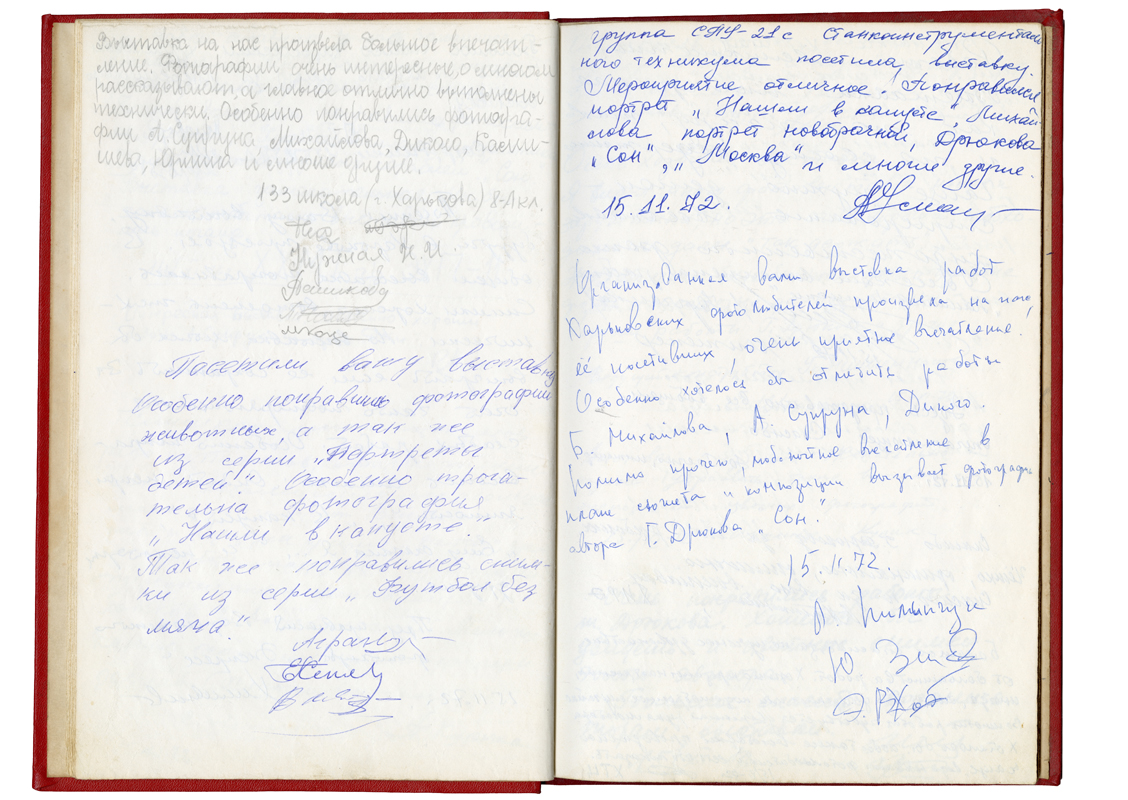 Выставка на нас произвела большое впечат-
ление. Фотографии очень интересные, о многом
рассказывают, а главное отлично выполнены
технически. Особенно понравились фотогра-
фии А. Супруна Михайлова, Дикого,
и многие другие.
133 школа (г. Харькова) 8-А кл.
Нужная Н.И.
Пашкова
Посетили вашу выставку
Особенно понравились фотографии
животных а так же
из серии „Портреты
детей". Особенно трога-
тельна фотография
„Нашли в капусте."
Так же понравились сним-
ки из серии „Футбол без
мяча".
группа СПУ-21с Станкоинструменталь
ного техникума посетила выставку.
Мероприятие отличное! Понравился
портрет „Нашли в капусте, Михай-
лова портрет новобрачной, Дрюкова
„Сон", „Москва" и многие другие.
15.11.72.
Организованная вами выставка работ
Харьковских фотолюбителей произвела на нас,
её посетивших, очень приятное впечатление.
Особенно хотелось бы отличить работы
Б. Михайлова, А. Супруна, Дикого.
Помимо прочего, любопытное впечатление в
плане сюжета и композиции вызывает фотография
автора Г. Дрюкова „Сон".
15.11.72.